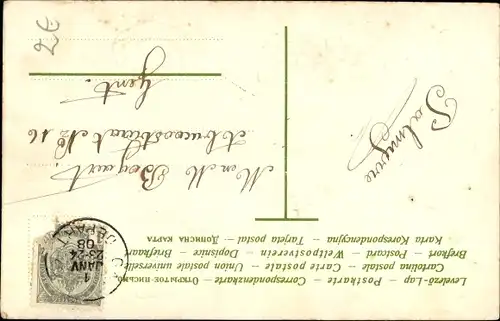 Levelező-Lap – Postkarte – Correspondenzkarte – Открытое письмо
Cartolina postale – Carte postale – Union postale universelle
Brefkort – Postcard – Weltpostverein – Dopisnice – Briefkaart
Karta Korespondencyjna – Tarjeta postal – Дописна карта
DEPART
1
JANV
23-24
08
M en M Bogaert
No 16
Gent.
Palmyre